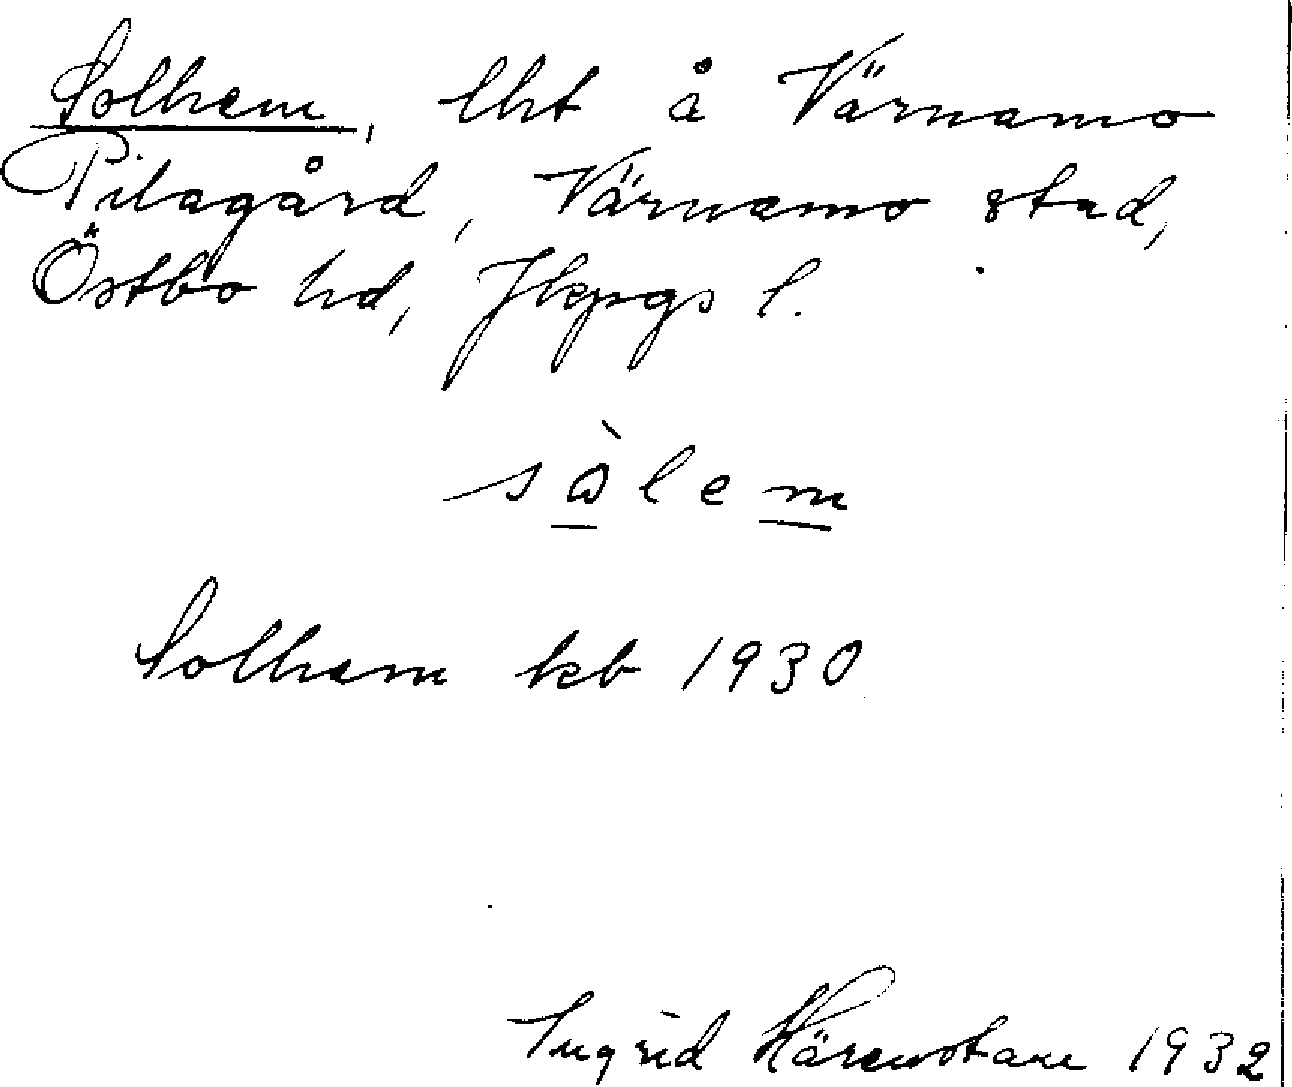 Solhem, lht å Värnamo
Pilagård, Värnamo stad,
Östbo hd, Jkpgs l.
sὰlem
Solhem kb 1930
Ingrid 1932